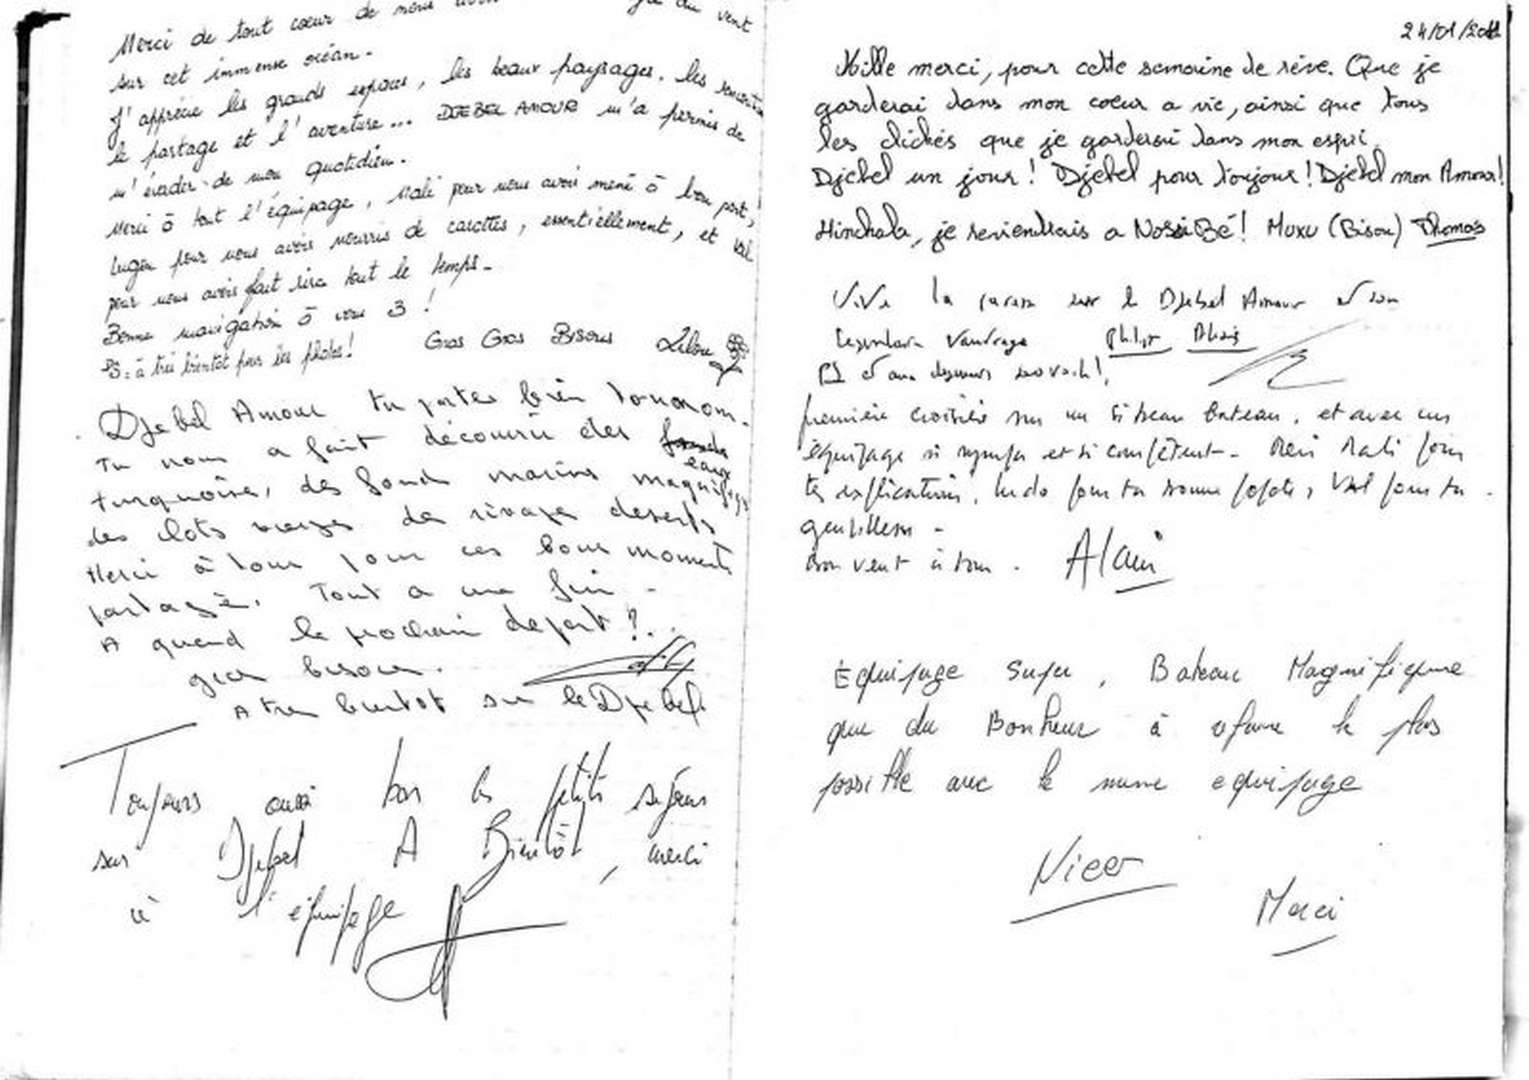 Merci de tout cœur de nous du vent
sur cet immense océan.
J'apprécie les grands espaces, les beaux paysages, les rencontres
le partage et l'aventure... DJEBEL AMOUR m'a permis de
m'évader de mon quotidien.
Merci à tout l'équipage, Mali pour nous avoir mené à bon port,
Ludo pour nous avoir nourris de carottes, essentiellement, et Val
pour nous avoir fait rire tout le temps.
Bonne navigation à vous 3 !
PS : à très bientôt pour les photos !
Gros Gros Bisous Lilou
Djebel Amour tu portes bien ton nom.
Tu nous a fait découvrir des eaux
turquoises, des fonds marins magnifiques
des ilots vierges des rivages deserts
Merci à tous pour ces bons moments
partagés. Tout a une fin -
A quand le prochain depart ?...
gros bisous.
A tres bientot sur le Djebel
Toujours aussi bon les petits séjours
sur Djebel A Bientôt, merci
à l'équipage
24/01/2011
Mille merci, pour cette semaine de rêve. Que je
garderai dans mon coeur a vie, ainsi que tous
les clichés que je garderai dans mon espri.
Djebel un jour ! Djebel pour toujour ! Djebel mon Amour !
Hinchala, je reviendrais a Nossi Bé ! Muxu (Bisou) Thomas
Vive la sur le Djebel Amour et son
PS et aux
première croisière sur un si beau bateau, et avec un
équipage si sympa et si compétent - Merci Mali pour
tes explications, Ludo pour ta bonne popote, Val pour ta
gentillesse -
Bon vent à tous. Alain
Equipage Super, Bateau Magnifique
que du Bonheur à refaire le plus
possible avec le meme equipage
Nico
Merci